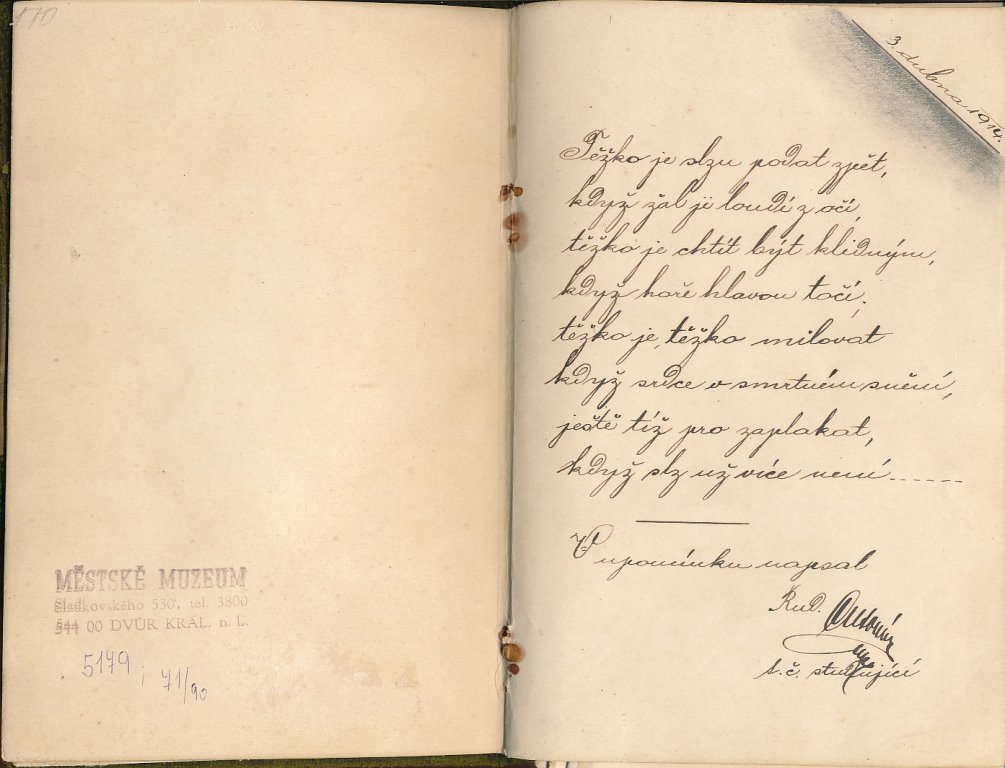 170
MĚSTSKÉ MUZEUM
Sladkovského 530, tel. 3800
544 00 DVŮR KRÁL. n. L.
5179; 71/90
3. dubna 1914.
Těžko je slzu podat zpět,
když žal ji loudí z očí,
těžko je chtít být klidným,
když hoře hlavou točí;
těžko je, těžko milovat
když srdce v smrtném snění,
ještě tíž pro zaplakat,
když slz už více není......
V upomínku napsal
Rud.
t. č. studující